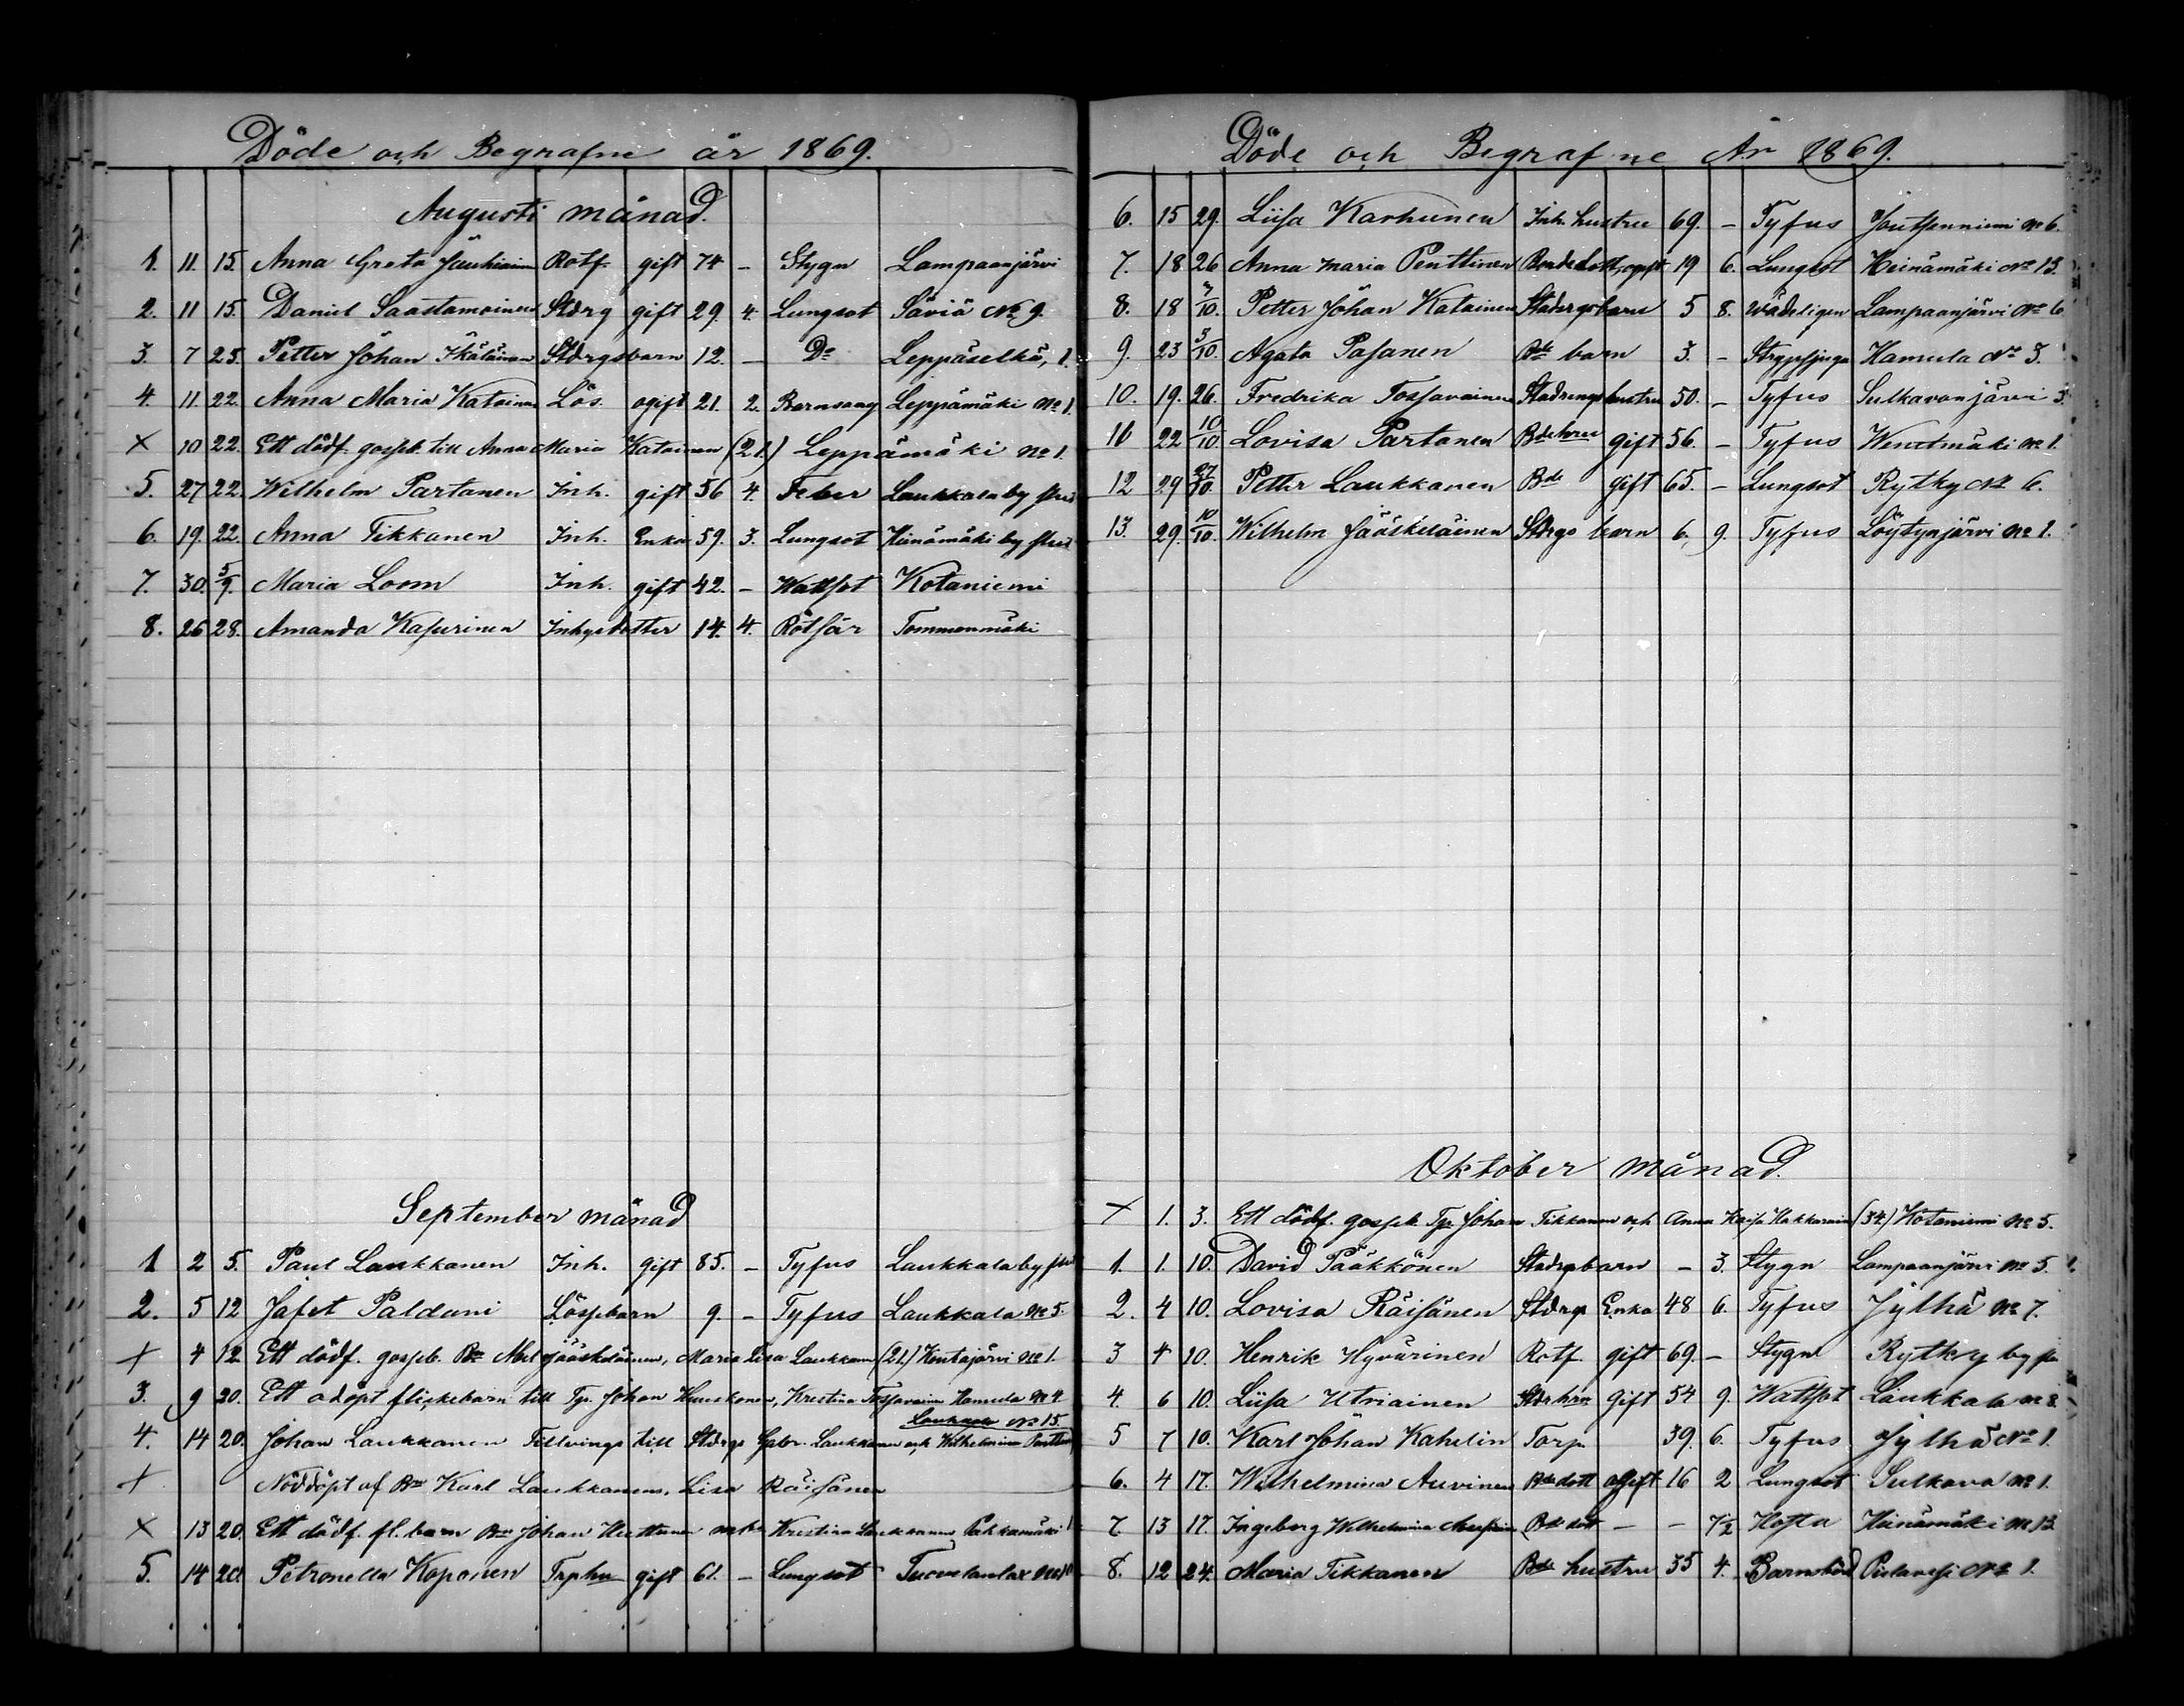 Döde och Begrafne år 1869.
Augusti månad.
1. 11. 15. Anna Greta Jauhiainen Rotf. gift 74 - Stygn Lampaanjärvi
2. 11 15. Daniel Saastamoinen Stdrg gift 29. 4. Lungsot Säviä No 9.
3. 7 25. Petter Johan Ikäläinen Stdrgsbarn 12. - Do Leppäselkä, 1.
4. 11. 22. Anna Maria Katainen Lös. ogift 21. 2. Barnsäng Leppämäki No 1.
× 10 22. Ett dödf. gosseb. till Anna Maria Katainen (21.) Leppämäki No 1.
5. 27 22. Wilhelm Partanen Inh. gift 56 4. Feber Laukkala by
6. 19. 22. Anna Tikkanen Inh. Enka 59. 3. Lungsot Heinämäki by
7. 30. 5/9. Maria Loom Inh. gift 42. - Wattsot Kotaniemi
8. 26 28. Amanda Kasurinen Inhysdotter 14. 4. Rötsår Tommonmäki
September månad
1 2 5. Paul Laukkanen Inh. gift 85. - Tyfus Laukkala by
2. 5 12 Jafet Paldani Lössebarn 9. - Tyfus Laukkala No 5.
× 4 12. Ett dödf. gosseb. Bn Abel Jääskeläinen, Maria Lisa Laukkanen (21.) Hentajärvi No 1.
3. 9 20. Ett odöpt flickebarn till Tp. Johan Huuskonen, Kristina Tossavainen Hamula No 4
Laukkala No 15.
4. 14 20. Johan Laukkanen Tillvings till Stdrgs Gabr. Laukkanen och Wilhelmina Penttinen
× Nöddöpt af Bn Karl Laukkanens, Lisa Räisänen
× 13 20. Ett dödf. fl. barn Bn Johan Huttunen Kristina Laukkanen Pakkamäki 1
5. 14 20. Petronella Koponen Trphu gift 61. - Lungsot
Döde och Begrafne År 1869.
6. 15 29. Liisa Karhunen Inh. hustru 69. - Tyfus Joutsenniemi No 6.
7. 18 26 Anna Maria Penttinen Bondedott, ogift 19 6. Lungsot Heinämäki No 13.
8. 18 3/10. Petter Johan Katainen Stadrgsbarn 5 8. Wådeligen Lampaanjärvi No 6
9. 23 3/10. Agata Pasanen Bde barn 3. - Strypsjuka Hamula No 3.
10. 19. 26. Fredrika Tossavainen Stadrengs hustru 50. - Tyfus Sulkavanjärvi 3.
11 22 10/10. Lovisa Partanen Bdehru gift 56. - Tyfus Wenetmäki No 1.
12 29 Petter Laukkanen Bde gift 65. - Lungsot Rytky No 6.
13. 29. 10/10. Wilhelm Jääskeläinen Stdrgs barn 6. 9. Tyfus Löytynjärvi No 1.
Oktober månad.
× 1. 3. Ett dödf. gosseb. Tp. Johan Tikkanen och Anna Kaisa Kakkarain (34.) Kotaniemi No 5.
1. 1. 10. David Pääkkönen Stadrgsbarn - 3. Stygn Lampaanjärvi No 5.
2. 4 10. Lovisa Räisänen Stdrgs Enka 48 6. Tyfus Jylhä No 7.
3 4 10. Henrik Hyvärinen Rotf. gift 69. - Stygn Rytky by
4. 6 10. Liisa Utriainen Stdrhus Gift 54 9. Wattsot Laukkala No 8.
5 7 10. Karl Johan Kahelin Torp. 39. 6. Tyfus Jylhä No 1.
6. 4 17. Wilhelmina Auvinen Bdedott ogift 16 2 Lungsot Sulkava No 1.
7. 13 17. Ingeborg Wilhelmina Bde dot - - 7½ Hosta Heinämäki No 13
8. 12 24. Maria Tikkanen Bde hustru 35 4. Barnsbörd Pielavesi No 1.